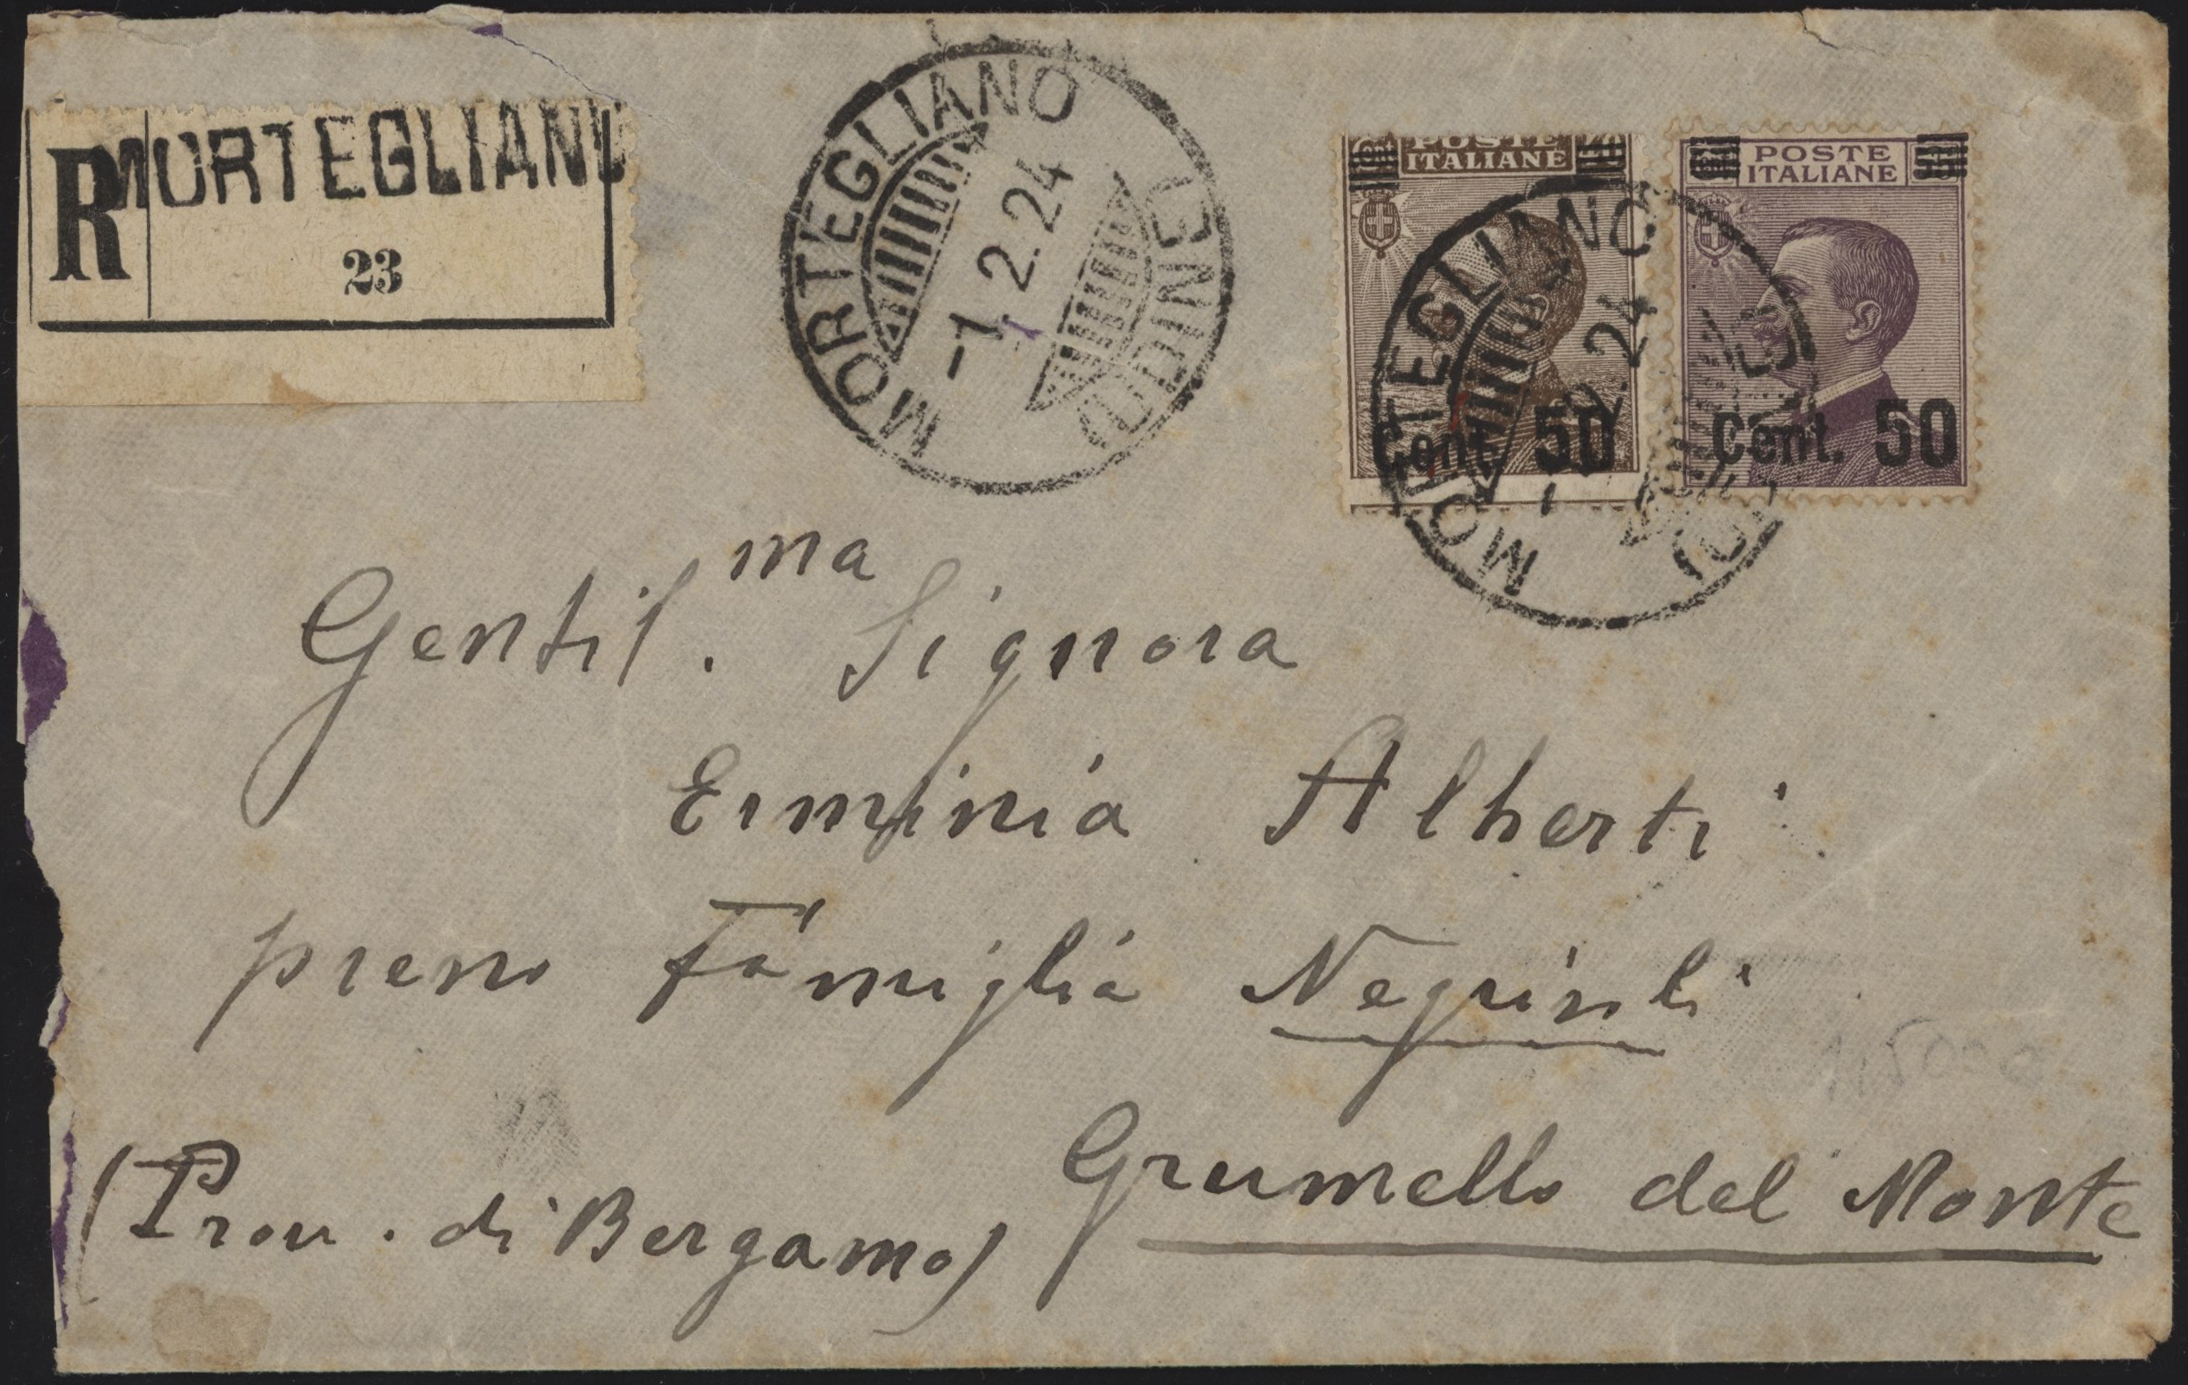 R MORTEGLIANO
23
MORTEGLIANO
-1.2.24
UDINE
POSTE
ITALIANE
Cent. 50
POSTE
ITALIANE
Cent. 50
MORTEGLIANO
-1.2.24
Gentil.ma Signora
Erminia Alberti
presso Famiglia
Grumello del Monte
(Prov. di Bergamo)